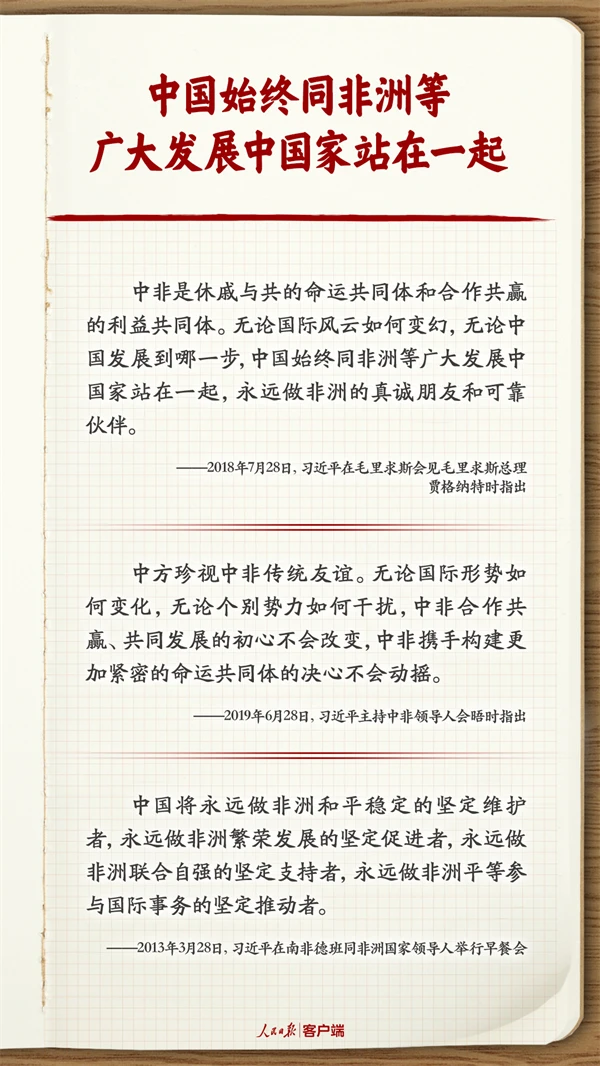 中国始终同非洲等
广大发展中国家站在一起
中非是休戚与共的命运共同体和合作共赢
的利益共同体。无论国际风云如何变幻，无论中
国发展到哪一步，中国始终同非洲等广大发展中
国家站在一起，永远做非洲的真诚朋友和可靠
伙伴。
——2018年7月28日，习近平在毛里求斯会见毛里求斯总理
贾格纳特时指出
中方珍视中非传统友谊。无论国际形势如
何变化，无论个别势力如何干扰，中非合作共
赢、共同发展的初心不会改变，中非携手构建更
加紧密的命运共同体的决心不会动摇。
——2019年6月28日，习近平主持中非领导人会晤时指出
中国将永远做非洲和平稳定的坚定维护
者，永远做非洲繁荣发展的坚定促进者，永远做
非洲联合自强的坚定支持者，永远做非洲平等参
与国际事务的坚定推动者。
——2013年3月28日，习近平在南非德班同非洲国家领导人举行早餐会
人民日报|客户端